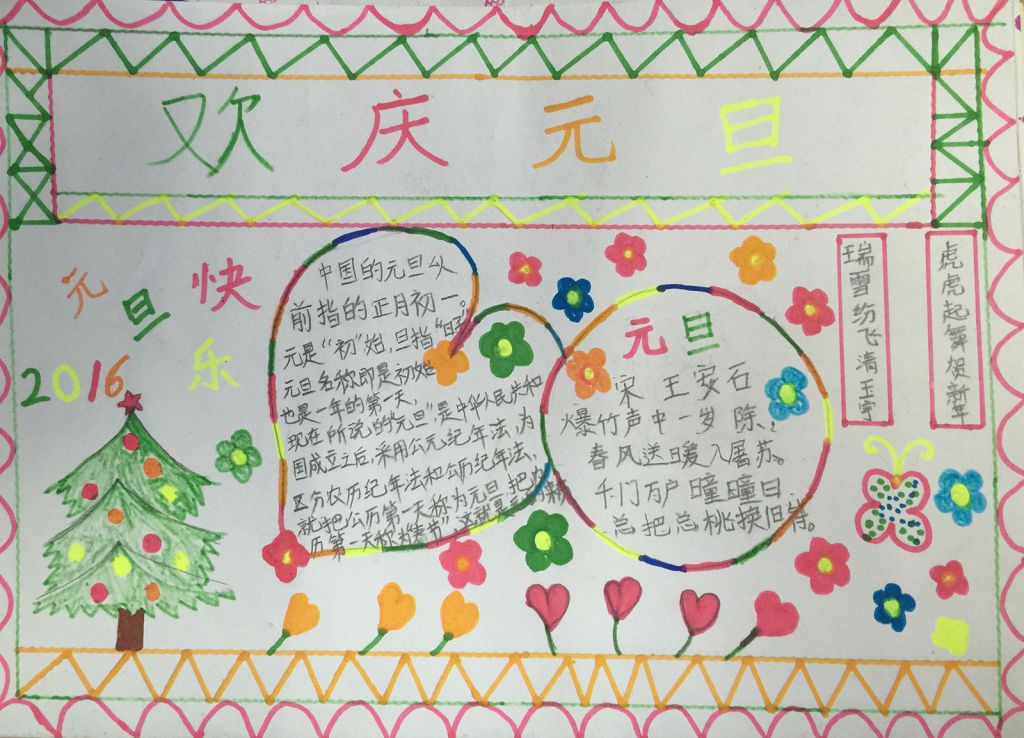 欢庆元旦
元旦快乐
2016
中国的元旦从
前指的正月初一。
元是“初”始,旦指“日子”
元旦名称即是初始
也是一年的第一天。
现在所说的元旦”是中华人民共和
国成立之后,采用公元纪年法,为
区分农历纪年法和公历纪年法,
就把公历第一天称为元旦,把农
历第一天称为春节”
元旦
宋 王安石
爆竹声中一岁除,
春风送暖入屠苏。
千门万户曈曈日
总把总桃换旧符。
瑞雪纷飞清玉宇
虎虎起舞贺新年